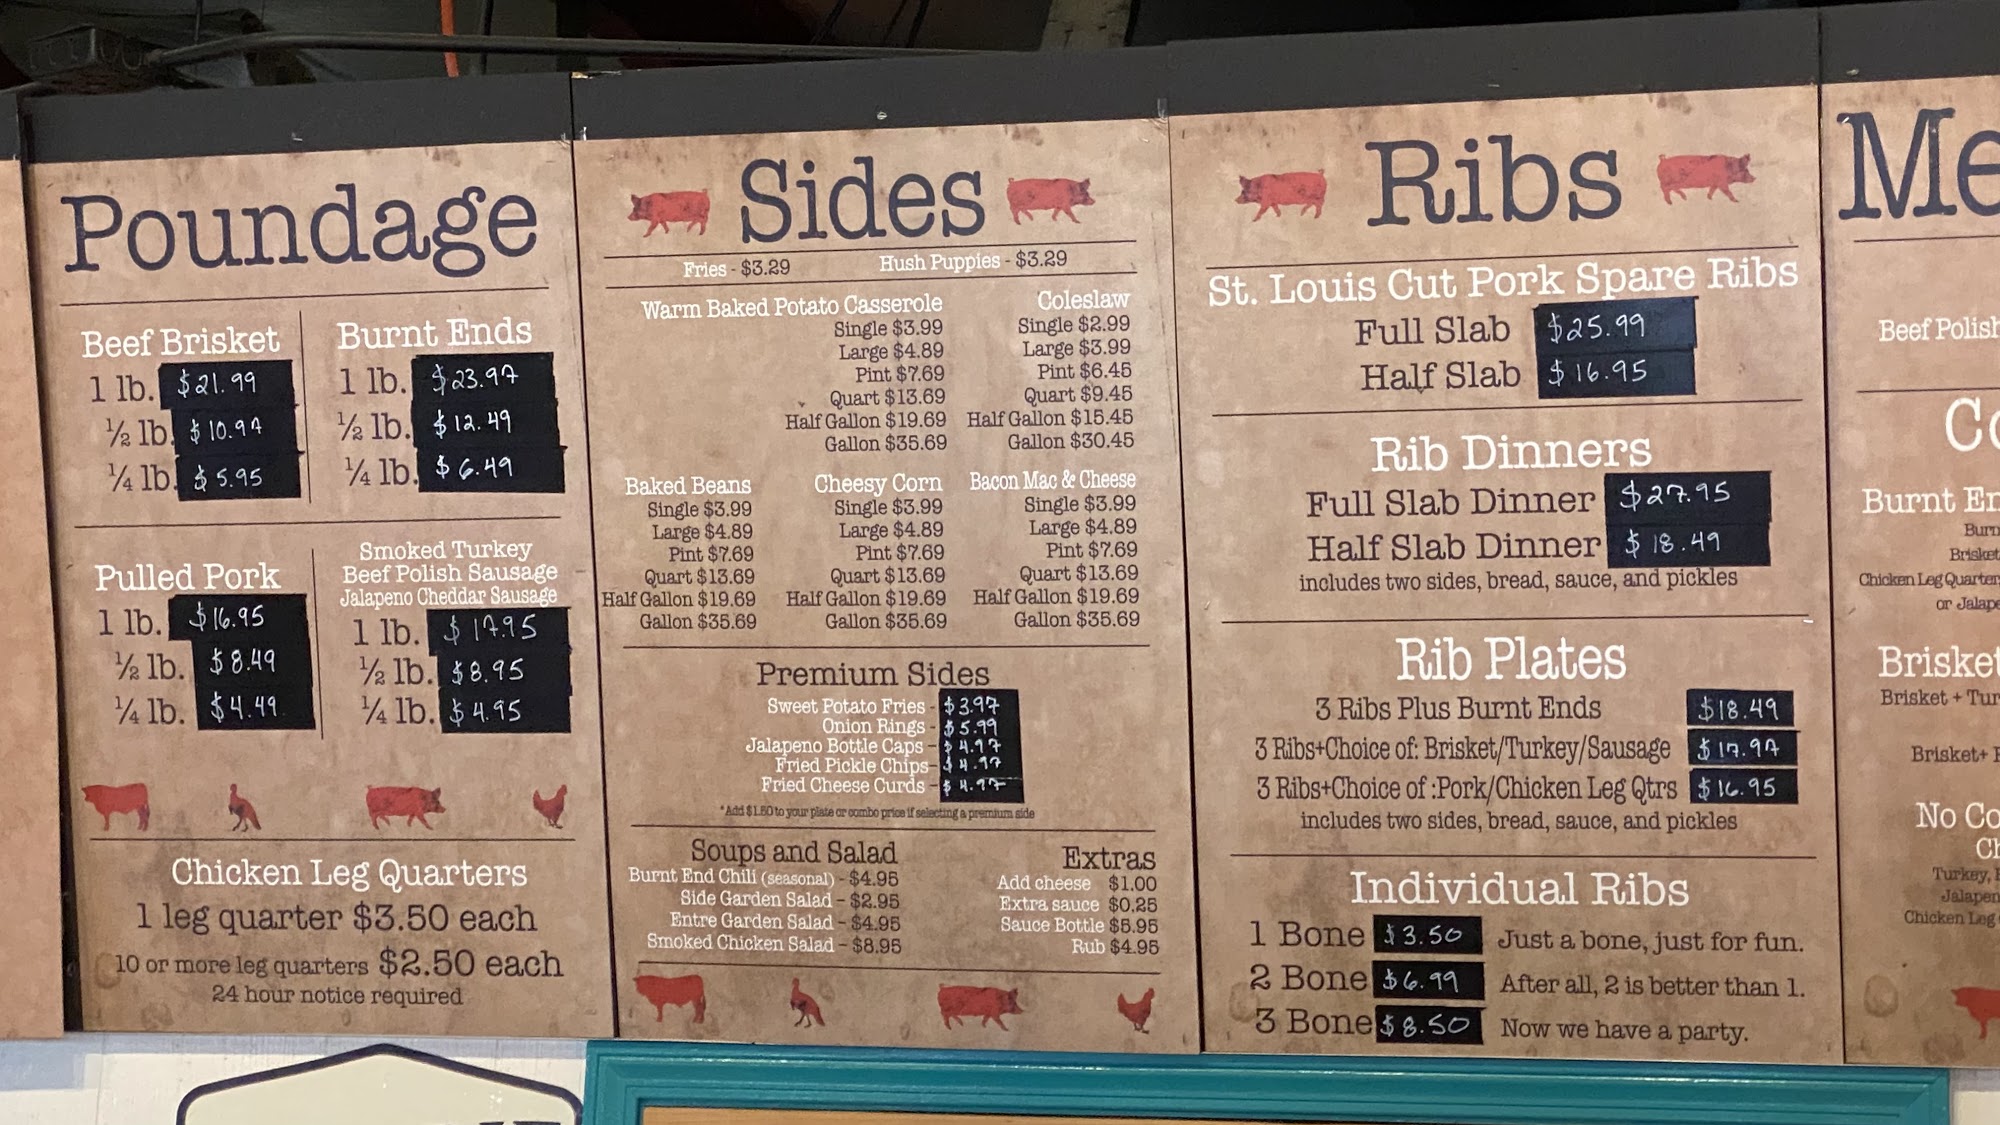 Poundage
Beef Brisket
1 lb. $21.99
½ lb. $10.97
¼ lb. $5.95
Burnt Ends
1 lb. $23.97
½ lb. $12.49
¼ lb. $6.49
Pulled Pork
1 lb. $16.95
½ lb. $8.49
¼ lb. $4.49
Smoked Turkey
Beef Polish Sausage
Jalapeno Cheddar Sausage
1 lb. $17.95
½ lb. $8.95
¼ lb. $4.95
Chicken Leg Quarters
1 leg quarter $3.50 each
10 or more leg quarters $2.50 each
24 hour notice required
Sides
Fries - $3.29 Hush Puppies - $3.29
Warm Baked Potato Casserole
Single $3.99
Large $4.89
Pint $7.69
Quart $13.69
Half Gallon $19.69
Gallon $35.69
Coleslaw
Single $2.99
Large $3.99
Pint $6.45
Quart $9.45
Half Gallon $15.45
Gallon $30.45
Baked Beans
Single $3.99
Large $4.89
Pint $7.69
Quart $13.69
Half Gallon $19.69
Gallon $35.69
Cheesy Corn
Single $3.99
Large $4.89
Pint $7.69
Quart $13.69
Half Gallon $19.69
Gallon $35.69
Bacon Mac & Cheese
Single $3.99
Large $4.89
Pint $7.69
Quart $13.69
Half Gallon $19.69
Gallon $35.69
Premium Sides
Sweet Potato Fries - $3.97
Onion Rings - $5.99
Jalapeno Bottle Caps - $4.97
Fried Pickle Chips - $4.97
Fried Cheese Curds - $4.97
*Add $1.50 to your plate or combo price if selecting a premium side
Soups and Salad
Burnt End Chili (seasonal) - $4.95
Side Garden Salad - $2.95
Entre Garden Salad - $4.95
Smoked Chicken Salad - $8.95
Extras
Add cheese $1.00
Extra sauce $0.25
Sauce Bottle $5.95
Rub $4.95
Ribs
St. Louis Cut Pork Spare Ribs
Full Slab $25.99
Half Slab $16.95
Rib Dinners
Full Slab Dinner $27.95
Half Slab Dinner $18.49
includes two sides, bread, sauce, and pickles
Rib Plates
3 Ribs Plus Burnt Ends $18.49
3 Ribs+Choice of: Brisket/Turkey/Sausage $17.97
3 Ribs+Choice of :Pork/Chicken Leg Qtrs $16.95
includes two sides, bread, sauce, and pickles
Individual Ribs
1 Bone $3.50 Just a bone, just for fun.
2 Bone $6.99 After all, 2 is better than 1.
3 Bone $8.50 Now we have a party.
Me
Beef Polish
Co
Burnt En
Burn
Brisket
Chicken Leg Quarter
or Jalape
Brisket
Brisket + Tur
Brisket+
No Co
Ch
Turkey,
Jalapen
Chicken Leg